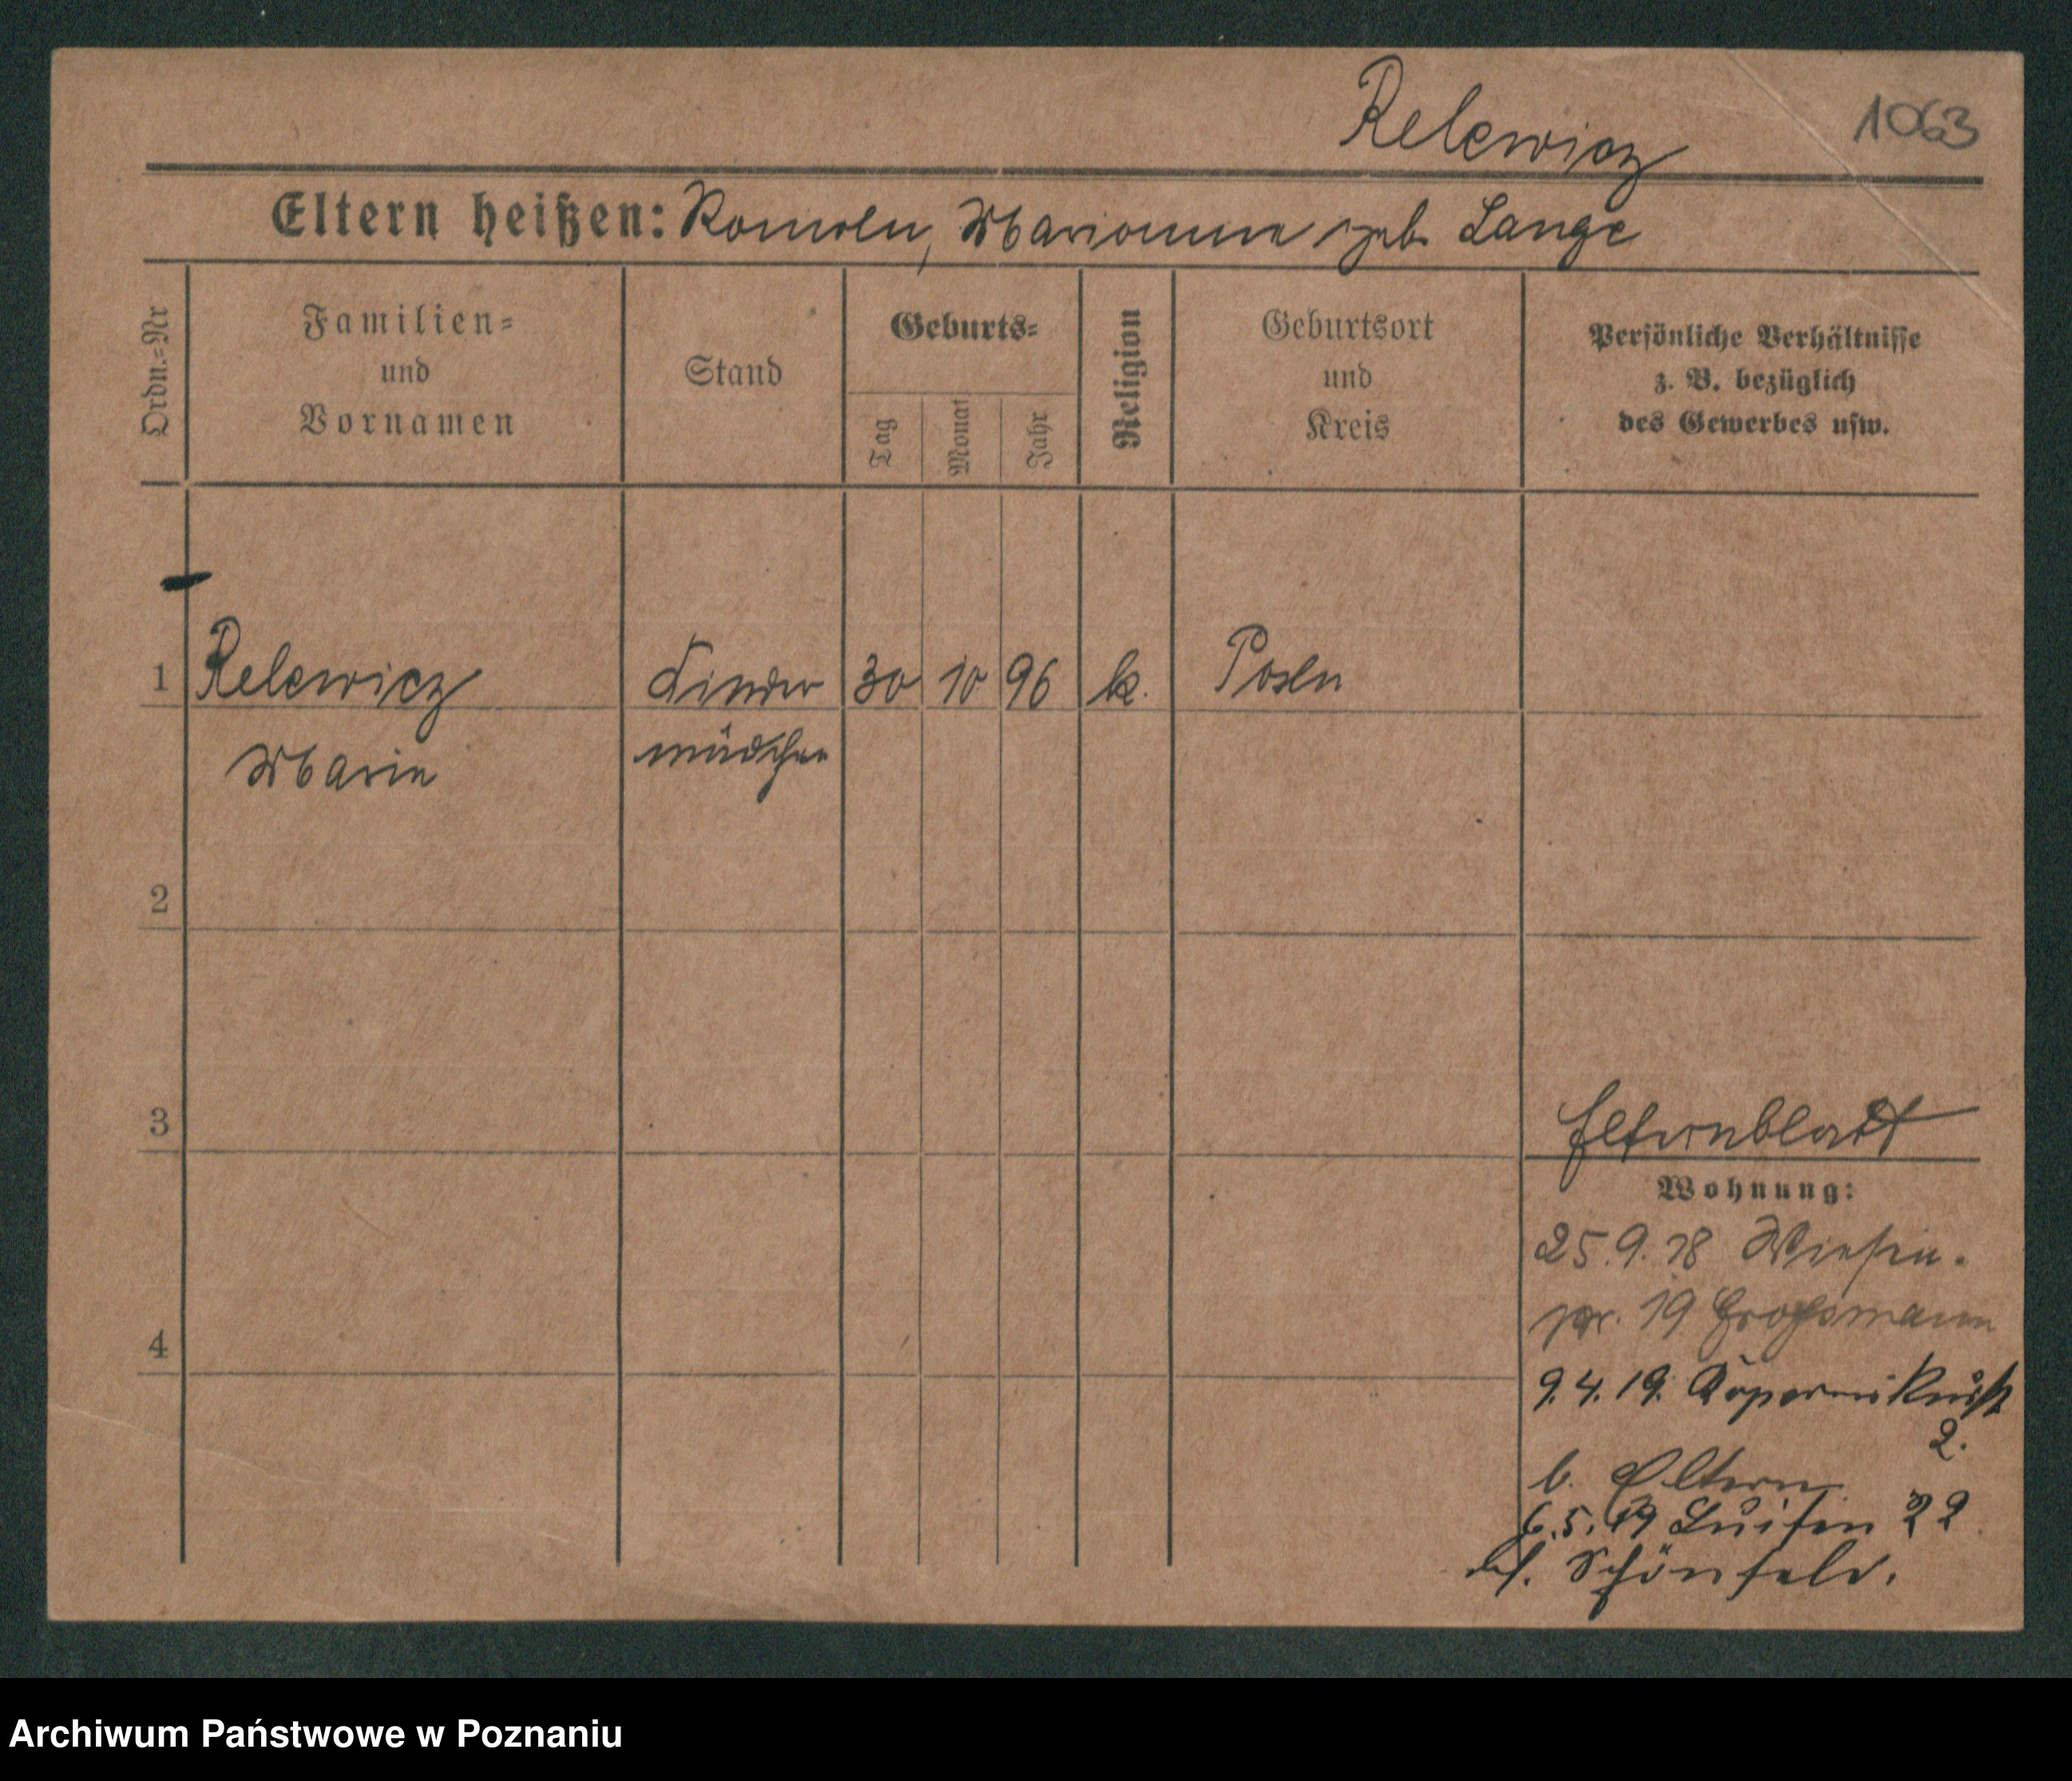 Relewicz
1063
Eltern heißen: Roman, Marianne geb. Lange
Ordn.=Nr
Familien=
und
Vornamen
Stand
Geburts=
Tag
Monat
Jahr
Religion
Geburtsort
und
Kreis
Persönliche Verhältnisse
z. B. bezüglich
des Gewerbes usw.
1 Relewicz Kinder 30 10 96 k. Posen
Marie mädchen
2
3
Elternblatt
Wohnung:
25.9.18 Wiesen.
4
19 Grossmann
9.4.19. Kopernikusst
2.
b. Eltern
6.5.19 Luisen 22
Schönfeld.
Archiwum Państwowe w Poznaniu